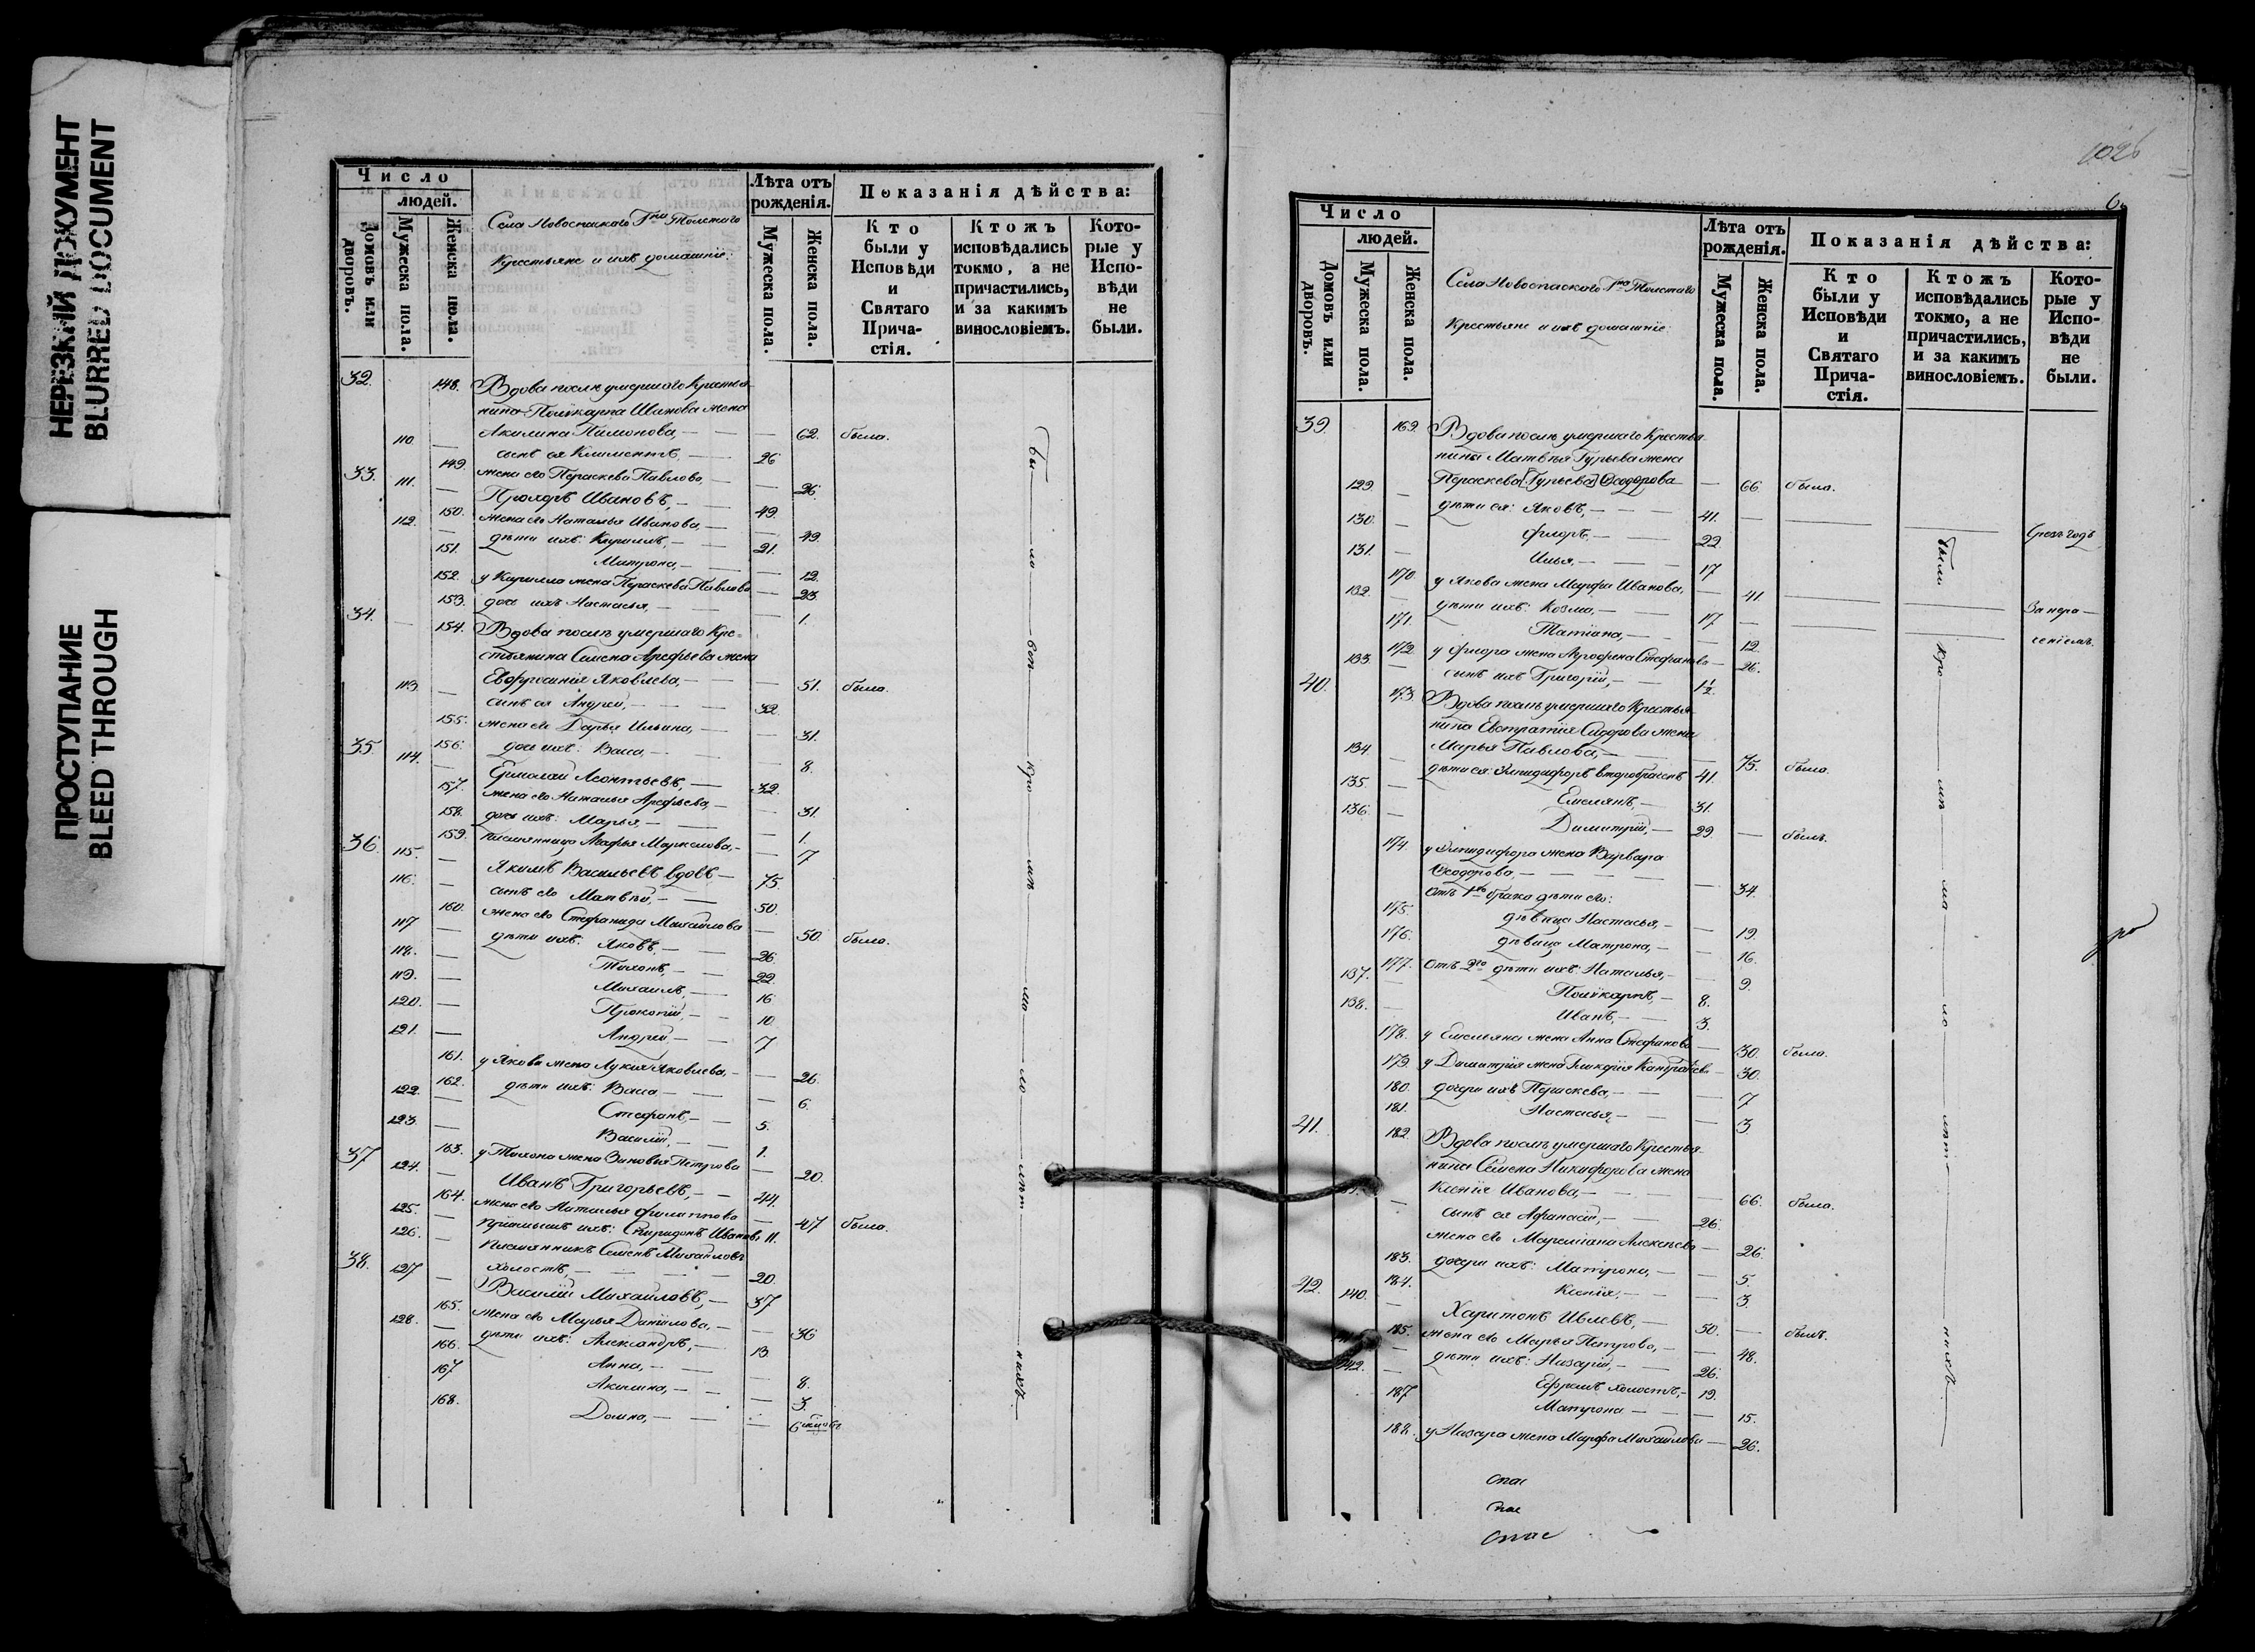 НЕРЕЗКИЙ ДОКУМЕНТ
BLURRED DOCUMENT
ПРОСТУПАНИЕ
BLEED THROUGH
Число
людей.
Домовъ или дворовъ.
Мужеска пола.
Женска пола.
Села Новоспаскаго Гна Толстаго
Крестьяне и ихъ домашніе:
Лѣта отъ рожденія.
Мужеска пола.
Женска пола.
Показанія дѣйства:
Кто были у Исповѣди и Святаго Прича-стія.
Ктожъ исповѣдались токмо, а не причастились, и за какимъ винословіемъ.
Кото-рые у Испо-вѣди не были.
32. 148. Вдова послѣ умершаго Крестья-
нина Поликарпа Иванова жена
Акилина Пимонова, — — 62. была.
110. — сынъ ея Климентъ, — 26
149. жена его Пераскева Павлова, — — 26.
33. 111. — Прохоръ Ивановъ, — 49.
150. жена его Наталья Иванова, — — 49.
112. — дѣти ихъ: Кириллъ, — 21.
151. Матрона, — — 12.
152. у Кирилла жена Пераскева Павлова — 23
153. дочь ихъ Настасья, — — 1.
34. — 154. Вдова послѣ умершаго Кре-
стьянина Семена Арефьева жена
Евфросинія Яковлева, — — 51. была.
113. — сынъ ея Андрей, — 32.
155. жена его Дарья Ильина, — — 31.
156. дочь ихъ: Васса, — — 8.
35. 114. — Ермолай Леонтьевъ, — 32.
157. жена его Наталья Арефьева, — — 31.
158. дочь ихъ: Марья, — — 1.
159. племянница Агафья Маркелова, — — 7
36. 115. — Якимъ Васильевъ вдовъ — 75.
116. — сынъ его Матвѣй, — 50.
160. жена его Стефанида Михайлова — 50. была.
117 — дѣти ихъ: Яковъ, — 26
118. — Тихонъ, — 22.
119. — Михаилъ, — 16
120. — Прокопій, — 10.
121. — Андрей — 7
161. у Якова жена Лукия Яковлева, — — 26.
162. дѣти ихъ: Васса — — 6.
122. — Стефанъ, — 5.
123. — Василій, — 1.
163. у Тихона жена Зиновья Петрова — 20.
37 124. — Иванъ Григорьевъ, — 44.
164. жена его Наталья Филиппова — 47 была.
125. — пріемышъ ихъ: Спиридонъ Ивановъ 11.
126. — племянникъ Семенъ Михайловъ
холостъ, — 20.
38. 127 — Василій Михайловъ, — 37
165. жена его Марья Данилова, — — 36
128. — дѣти ихъ: Александръ, — 13.
166. Анна, — — 8.
167 Акилина, — — 3.
168. Домна, — — 6
бы — ли — вси — кро — мѣ — ма — ло — лѣт — нихъ
1026
6.
Число
людей.
Домовъ или дворовъ.
Мужеска пола.
Женска пола.
Села Новоспаскаго Гна Толстаго
Крестьяне и ихъ домашніе:
Лѣта отъ рожденія.
Мужеска пола.
Женска пола.
Показанія дѣйства:
Кто были у Исповѣди и Святаго Прича-стія.
Ктожъ исповѣдались токмо, а не причастились, и за какимъ винословіемъ.
Кото-рые у Испо-вѣди не были.
39. 169. Вдова послѣ умершаго Крестья-
нина Матвѣя Гурьева жена
Пераскева [Гурьева] Ѳеодорова — 66. была.
129. — дѣти ея: Яковъ, — 41. —
130. — Флоръ, — 22
131. — Илья, — 17
170. у Якова жена Марфа Иванова, — 41.
132. — дѣти ихъ: Козма, — 17 —
171. Татіана, — — 12.
172 у Флора жена Агрофена Стефанова — 26.
133. — сынъ ихъ Григорій, — 1½
За нера-
сеніемъ
40. 173 Вдова послѣ умершаго Крестья-
нина Евстратія Сидорова жена
Марья Павлова, — — 75. была.
134. — дѣти ея: Элпидифоръ второбрачнъ 41.
135. — Емелянъ, — 31.
136. — Димитрій, — 29. — былъ.
174. у Элпидифора жена Варвара
Ѳеодорова, — — 34.
отъ 1го брака дѣти его:
175. дѣвица Настасья, — — 19.
176. дѣвица Матрона, — — 16.
177. отъ 2го дѣти ихъ: Наталья, — — 9.
137. — Поликарпъ, — 8.
138. — Иванъ, — 3.
178. у Емельяна жена Анна Стефанова — 30. была.
179. у Димитрія жена Гликерія Кандратьева — 30.
180. дочери ихъ Пераскева, — — 7
181. Настасья, — — 3
41. 182. Вдова послѣ умершаго Крестья-
нина Семена Никифорова жена
Ксенія Иванова, — — 66. была.
— сынъ ея Афанасій, — 26.
жена его Маремьяна Алексѣева — 26.
183. дочери ихъ: Матрона, — — 5.
184. Ксенія, — — 3.
42. 140. — Харитонъ Ивлевъ, — 50. — былъ.
185. жена его Марья Петрова, — — 48.
— дѣти ихъ: Назарій, — 26.
142. — Ефремъ холостъ, — 19.
187 Матрона — — 15.
188. у Назара жена Марфа Михайлова — 26.
были — кро — мѣ — ма — ло — лѣт — нихъ
спас
спас
спас